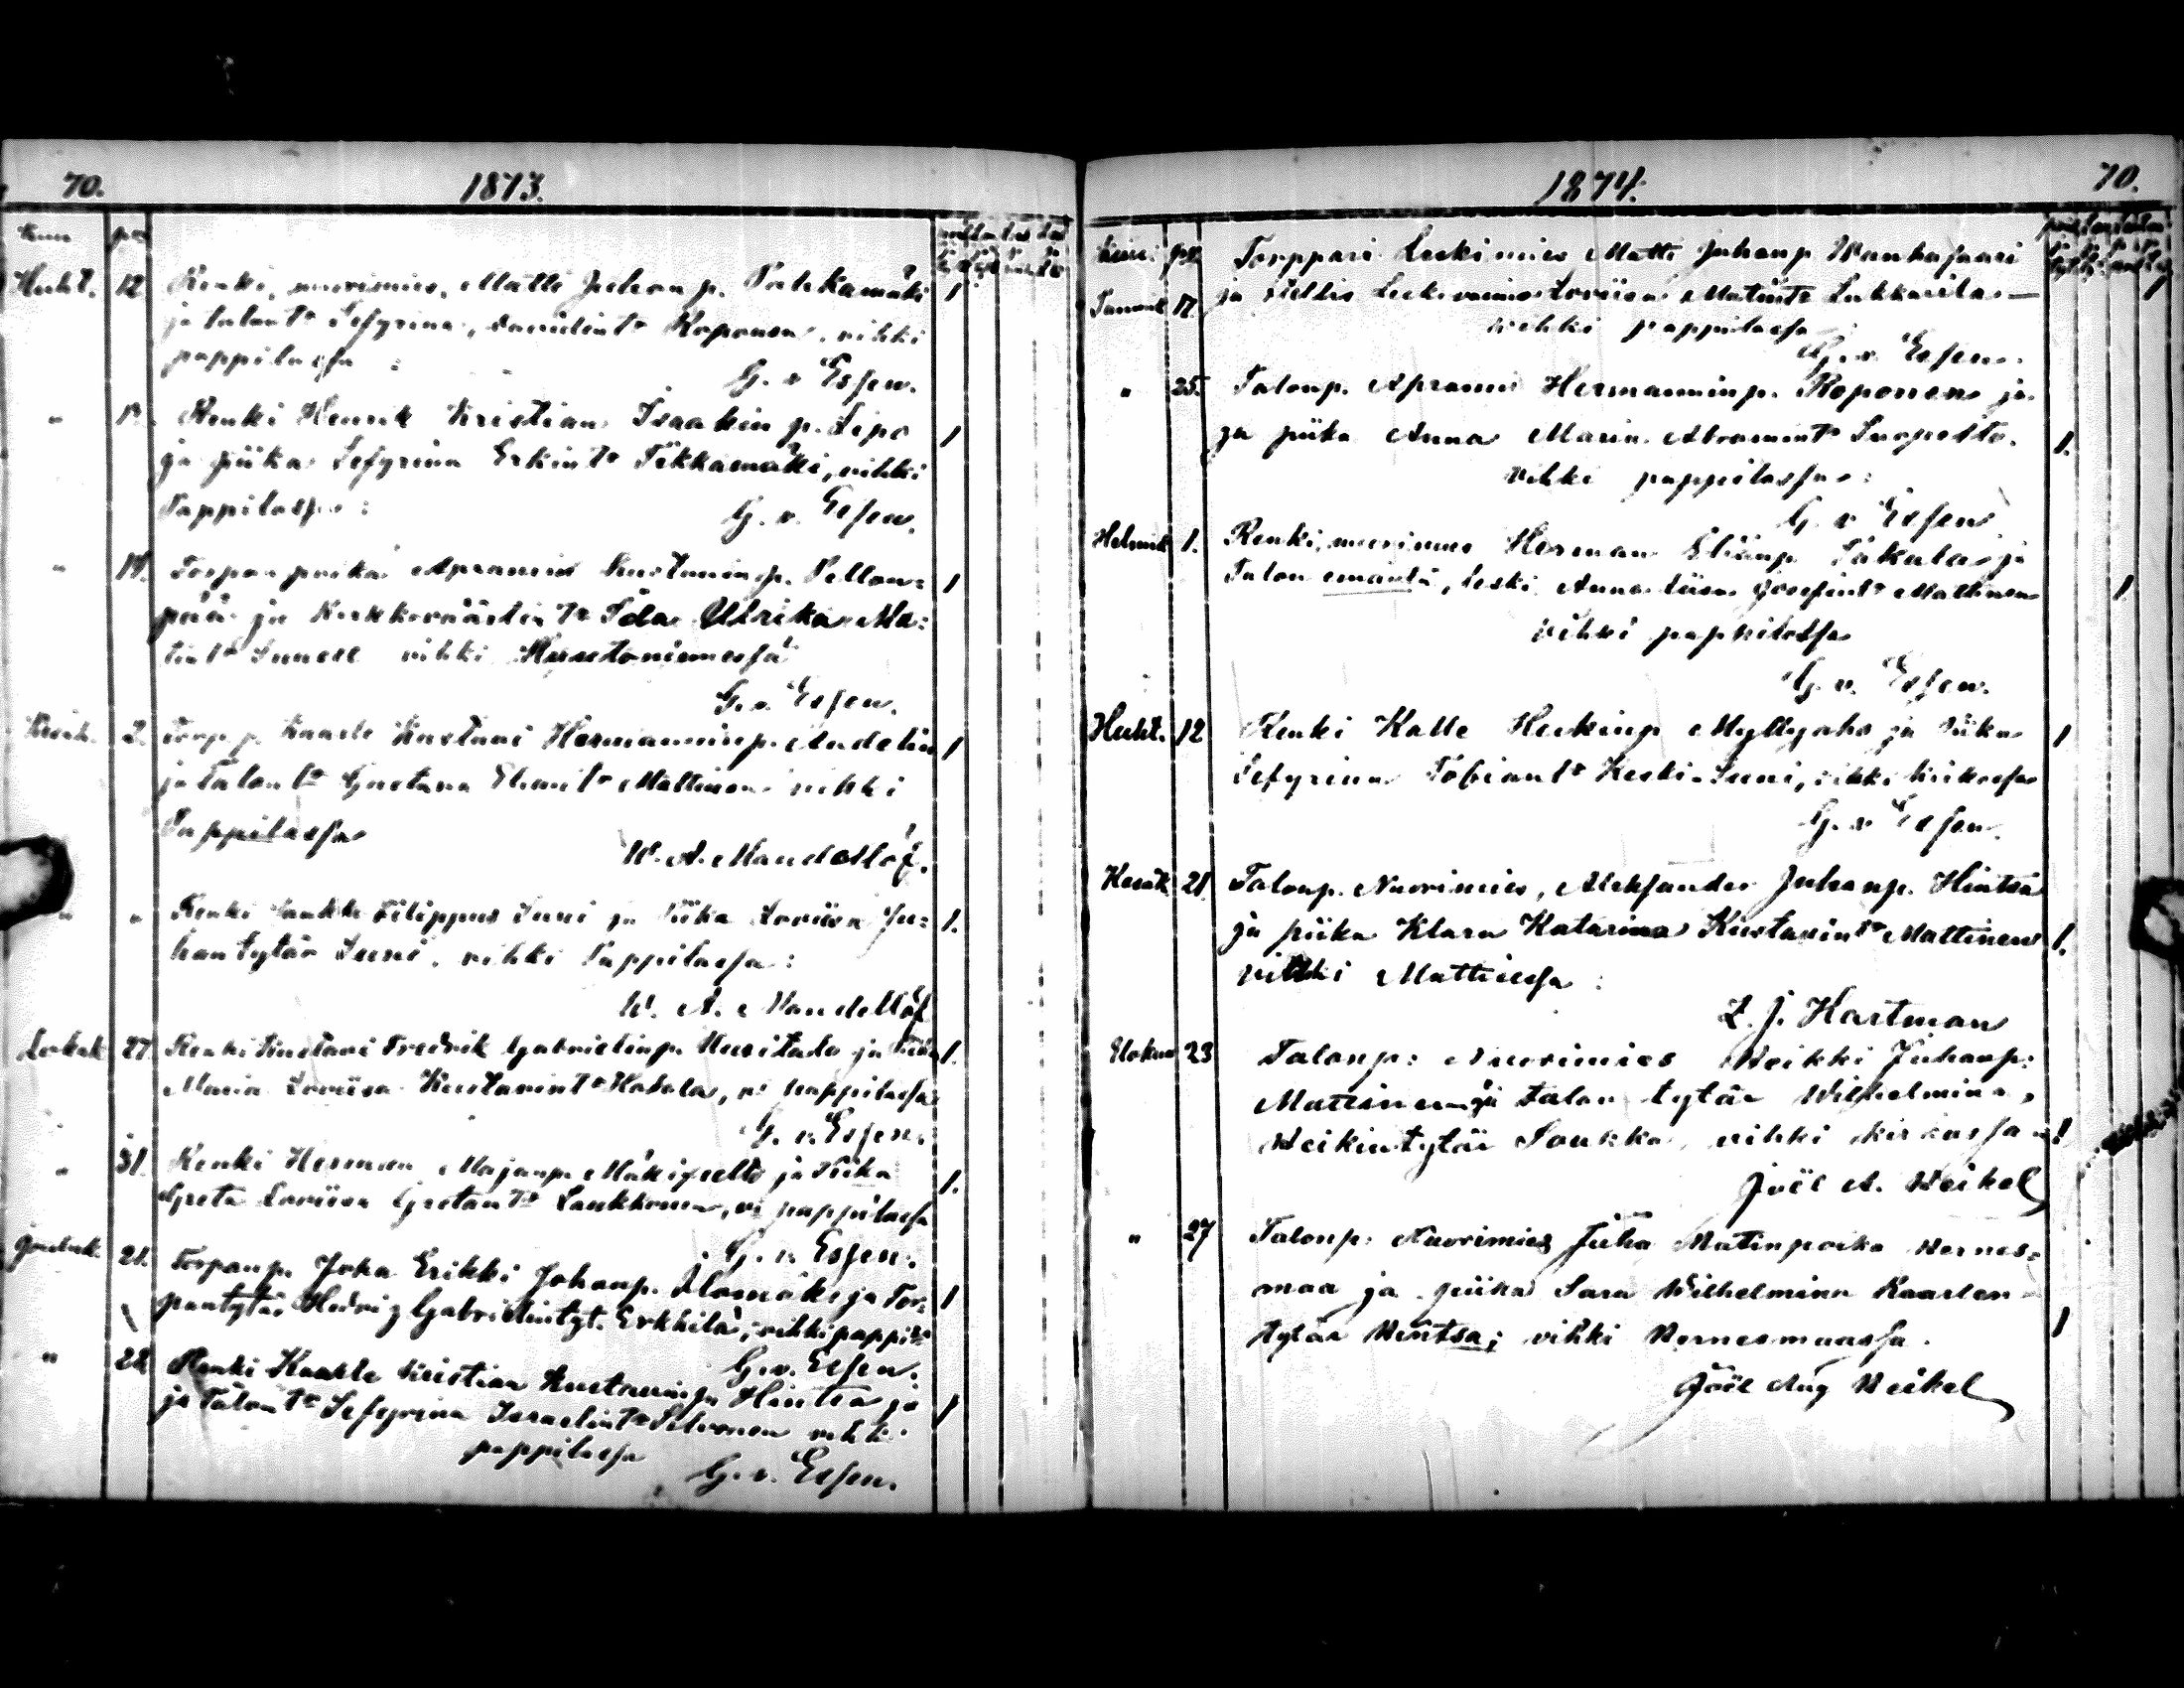 70. 1873.
Huht. 12 Renki, nuorimies, Matti Juhan p. Pahkamäki 1
ja talont:r Sefyrina, Davidint:r Koponen, vihki
pappilassa :
G. v Essen.
" Renki Henrik Kristian Isaakin p. Sipo 1
ja piika Sefyrina Erkint:r Tikkamäki, vihki
Pappilassa :
G. v. Essen.
" 19. Torpan poika Apramis Kustanin p. Pellon= 1
pää ja Kirkkoväärtin t:r Ida Ulrika Ma=
tint:r Suneli vihki
G. v. Essen.
2. Torp. p. Kaarle Kustavi Hermanninp. Andelin 1
ja talon t:r Gustava Elient:r Mattinen vihki
Pappilassa
W. A. Mandellöf.
" " Renki Filippus Suni ja Piika Loviisa Ju= 1.
hantytär Suni, vihki Pappilassa :
W. A. Mandellöf
Lokak 27 Renki Kustavi Fredrik Gabrielinp. ja Piika 1.
Maria Loviisa Kustavint:r Hakala, v: pappilassa
G. v. Essen.
" 31. Renki Herman Majanp. Mäkipelto ja Piika 1.
Greta Loviisa Gretan t:r Laukkonen, vi pappilassa
G. v. Essen.
Jouluk. 21. Torpanp. Joha Erikki Johanp. Alamäki ja Tor= 1
pantytär Hedvig Gabrielintyt. Erkkilä, vihki pappil:
G. v. Essen.
" 28 Renki Kaarle Kristian Kustaninp. Hintsa ja 1
ja Talont:r Sefyrina Israelint:r Silvonen vihki
pappilassa
G. v. Essen.
1874. 70.
Kuu: pv. Torppari Leskimies Matti Juhanp
Tammik 17. ja Leskivaimo Loviisa Matint:r Lukkarila —
vihki pappilassa
G. v. Essen.
" 25. Talonp. Apramis Hermanninp. Koponen ja
ja piika Anna Maria Abramint:r 1.
vihki pappilassa :
G. v Essen
Helmik 1. Renki, nuorimies Herman Elianp Takala ja
Talon emäntä, leski Anna Liisa Josefint:r Mattinen 1
vihki pappilassa
G. v. Essen.
Huht. 12 Renki Kalle Heikinp Myllyaho ja Piika 1
Sefyrina Tobiant:r Keski-Suni, vihki kirkossa
G. v Essen.
Kesäk 21. Talonp. Nuorimies, Aleksander Juhanp. Hintsa
ja piika Klara Katarina Kustavint:r Mattinen 1.
vihki Mattilassa :
L. J. Hartman
Elokuu 23 Talonp: Nuorimies Heikki Juhanp:
Mattinen ja talon tytär Wilhelmina,
Heikintytär Soukka, vihki kirkossa 1
Joël A. Heikel
" 27 Talonp: Nuorimies Juha Matinpoika Hernes=
maa ja piika Sara Wilhelmina Kaarlen
tytär Hintsa; vihki Hernesmaassa. 1
Joël Aug Heikel